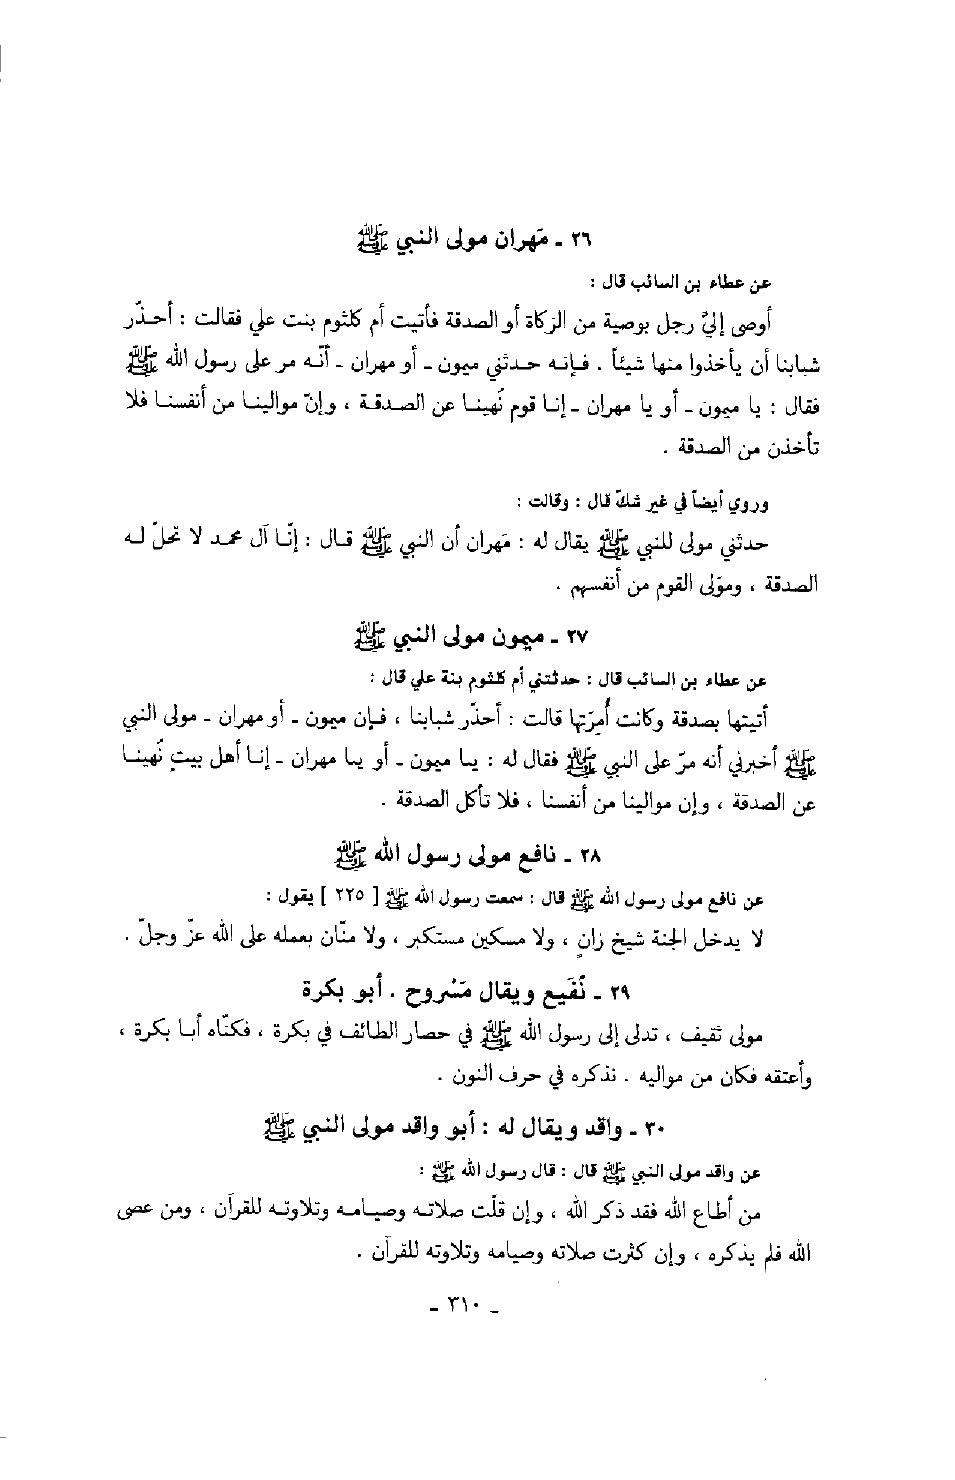 ٢٦ ـ مَهران مولى النبي ﷺ
عن عطاء بن السائب قال :
أوصى إليّ رجل بوصية من الزكاة أو الصدقة فأتيت أم كلثوم بنت علي فقالت : أحذّر
شبابنا أن يأخذوا منها شيئاً . فإنه حدثني ميمون ـ أو مهران ـ أنّه مر على رسول الله ﷺ
فقال : يا ميمون ـ أو يا مهران ـ إنا قوم نُهينا عن الصدقة ، وإنّ موالينا من أنفسنا فلا
تأخذن من الصدقة .
وروي أيضاً في غير شكّ قال : وقالت :
حدثني مولى للنبي ﷺ يقال له : مَهران أن النبي ﷺ قال : إنّا آل محمد لا تحلّ له
الصدقة ، ومَوْلى القوم من أنفسهم .
٢٧ ـ ميمون مولى النبي ﷺ
عن عطاء بن السائب قال : حدثتني أم كلثوم بنة علي قال :
أتيتها بصدقة وكانت أُمِرَتها قالت : أحذّر شبابنا ، فإن ميمون ـ أو مهران ـ مولى النبي
ﷺ أخبرني أنه مرّ على النبي ﷺ فقال له : يا ميمون ـ أو يا مهران ـ إنا أهل بيتٍ نُهينا
عن الصدقة ، وإن موالينا من أنفسنا ، فلا تأكل الصدقة .
٢٨ ـ نافع مولى رسول الله ﷺ
عن نافع مولى رسول الله ﷺ قال : سمعت رسول الله ﷺ [ ٢٢٥ ] يقول :
لا يدخل الجنة شيخ زانٍ ، ولا مسكين مستكبر ، ولا منّان بعمله على الله عزّ وجلّ .
٢٩ ـ نُفَيع ويقال مَسْروح . أبو بكرة
مولى ثقيف ، تدلى إلى رسول الله ﷺ في حصار الطائف في بكرة ، فكنّاه أبا بكرة ،
وأعتقه فكان من مواليه . نذكره في حرف النون .
٣٠ ـ واقد ويقال له : أبو واقد مولى النبي ﷺ
عن واقد مولى النبي ﷺ قال : قال رسول الله ﷺ :
من أطاع الله فقد ذكر الله ، وإن قلّت صلاته وصيامه وتلاوته للقرآن ، ومن عصى
الله فلم يذكره ، وإن كثرت صلاته وصيامه وتلاوته للقرآن .
ـ ٣١٠ ـ